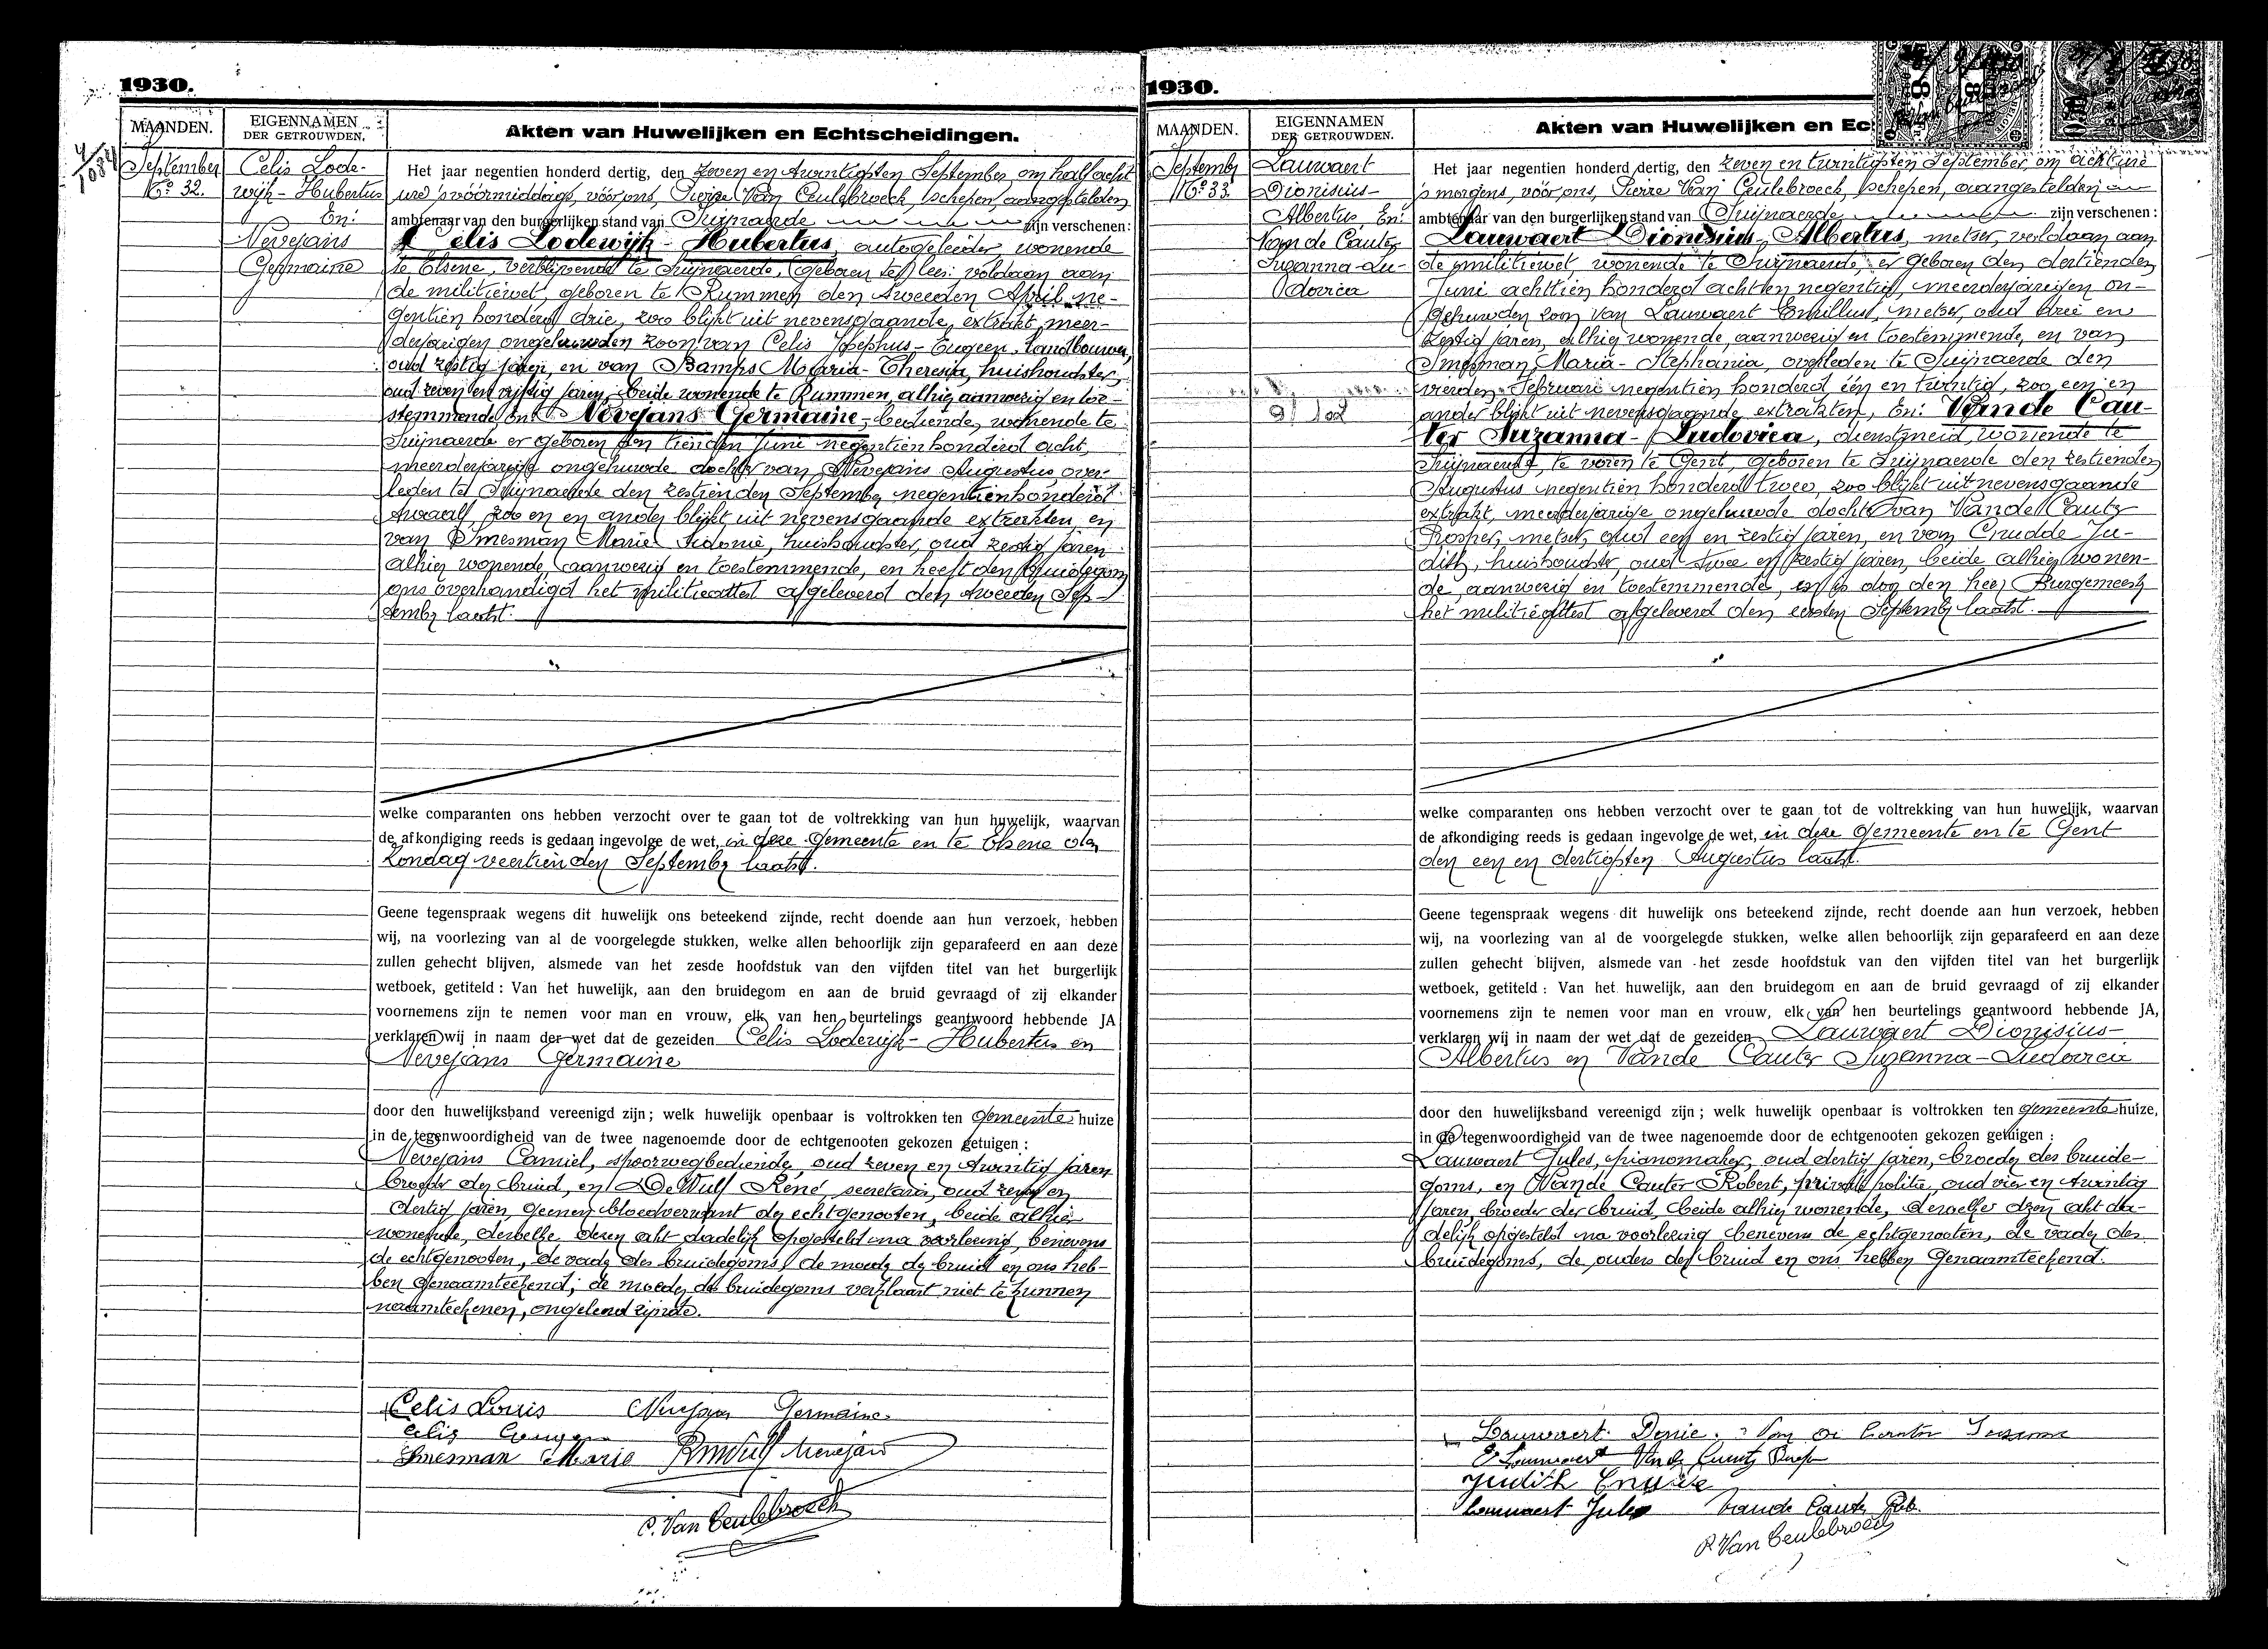 1930.
MAANDEN.
EIGENNAMEN
DER GETROUWDEN.
Akten van Huwelijken en Echtscheidingen.
September
No. 32.
Celis Lode-
wijk - Hubertus
En:
Nevejans
Germaine
Het jaar negentien honderd dertig, den zeven en twintigsten September om half acht
ure voormiddag, vóór ons, Pierre Van Ceulebroeck, schepen, aangestelden
ambtenaar van den burgerlijken stand van Suijnaerde zijn verschenen:
Celis Lodewijk - Hubertus, autogeleider, wonende
te Elsene, verblijvende te Suijnaerde, voldaan aan
de militiewet, geboren te Rummen den tweeden April ne-
gentien honderd drie, zoo blijkt uit nevensgaande extrakt, meer-
derjarigen ongehuwden zoon van Celis Josephus - Eugeen, landbouwer,
oud zestig jaren, en van Bamps Maria - Theresia, huishoudster,
oud zeven en vijftig jaren, beide wonende te Rummen, alhier aanwezig en toe-
stemmende, En: Nevejans Germaine, bediende, wonende te
Suijnaerde er geboren den tienden Juni negentien honderd acht,
meerderjarige ongehuwde dochter van Nevejans Augustus over-
leden te Suijnaerde den zestienden September negentienhonderd
twaalf, zoo en en ander blijkt uit nevensgaande extrakten, en
van Smesman Marie Sidonie, huishoudster, oud zestig jaren
alhier wonende, aanwezig en toestemmende, en heeft den bruidegom
ons overhandigd het militieattest afgeleverd den tweeden Sep-
tember laatst.
welke comparanten ons hebben verzocht over te gaan tot de voltrekking van hun huwelijk, waarvan
de afkondiging reeds is gedaan ingevolge de wet, in deze gemeente en te Elsene den
Zondag veertienden September laatst.
Geene tegenspraak wegens dit huwelijk ons beteekend zijnde, recht doende aan hun verzoek, hebben
wij, na voorlezing van al de voorgelegde stukken, welke allen behoorlijk zijn geparafeerd en aan deze
zullen gehecht blijven, alsmede van het zesde hoofdstuk van den vijfden titel van het burgerlijk
wetboek, getiteld : Van het huwelijk, aan den bruidegom en aan de bruid gevraagd of zij elkander
voornemens zijn te nemen voor man en vrouw, elk van hen beurtelings geantwoord hebbende JA
verklaren wij in naam der wet dat de gezeiden Celis Lodewijk - Hubertus en
Nevejans Germaine
door den huwelijksband vereenigd zijn; welk huwelijk openbaar is voltrokken ten gemeente huize
in de tegenwoordigheid van de twee nagenoemde door de echtgenooten gekozen getuigen :
Nevejans Camiel, spoorwegbediende, oud zeven en twintig jaren
broeder der bruid, en De Wulf René secretaris, oud zeven en
dertig jaren, geenen bloedverwant der echtgenooten, beide alhier
wonende, dewelke dezen akt dadelijk opgesteld na voorlezing, benevens
de echtgenooten, de vader des bruidegoms, de moeder der bruid en ons heb-
ben genaamteekend; de moeder des bruidegoms verklaart niet te kunnen
naamteekenen, ongeleerd zijnde.
Celis Louis Nevejans Germaine
Celis Eugeen
Smesman Marie RDeWulf Nevejans
P. Van Ceulebroeck
1930.
MAANDEN.
EIGENNAMEN
DER GETROUWDEN.
Akten van Huwelijken en Ec
September
No. 33
Lauwaert
Dionisius-
Albertus En:
Van de Cauter
Suzanna-Lu-
dovica
Het jaar negentien honderd dertig, den zeven en twintigsten September, om acht ure
's morgens, vóór ons, Pierre Van Ceulebroeck, schepen, aangestelden
ambtenaar van den burgerlijken stand van Suijnaerde zijn verschenen:
Lauwaert Dionisius, Albertus, metser, voldaan aan
de militiewet, wonende te Suijnaerde, er geboren den dertienden
Juni achttien honderd achten negentig, meerderjarigen on-
gehuwden zoon van Lauwaert Emillus, metser, oud drie en
zestig jaren, alhier wonende, aanwezig en toestemmende, en van
Smesman, Maria - Stephania, overleden te Suijnaerde den
vierden Februari negentien honderd één en twintig, zoo een en
ander blijkt uit nevensgaande extrakten, En: Van de Cau-
ter Suzanna - Ludovica, dienstmeid, wonende te
Suijnaerde, te voren te Gent, geboren te Suijnaerde den zestienden
Augustus negentien honderd twee, zoo blijkt uit nevensgaande
extrakt, meerderjarige ongehuwde dochter van Van de Cauter
Prosper, metser, oud een en zestig jaren, en van Crudde Ju-
dith, huishoudster, oud twee en zestig jaren, beide alhier wonen-
de, aanwezig en toestemmende, en is door den heer Burgemeester
het militieattest afgeleverd den eersten September laatst.
welke comparanten ons hebben verzocht over te gaan tot de voltrekking van hun huwelijk, waarvan
de afkondiging reeds is gedaan ingevolge de wet, in deze gemeente en te Gent
den een en dertigsten Augustus laatst.
Geene tegenspraak wegens dit huwelijk ons beteekend zijnde, recht doende aan hun verzoek, hebben
wij, na voorlezing van al de voorgelegde stukken, welke allen behoorlijk zijn geparafeerd en aan deze
zullen gehecht blijven, alsmede van het zesde hoofdstuk van den vijfden titel van het burgerlijk
wetboek, getiteld : Van het huwelijk, aan den bruidegom en aan de bruid gevraagd of zij elkander
voornemens zijn te nemen voor man en vrouw, elk van hen beurtelings geantwoord hebbende JA,
verklaren wij in naam der wet dat de gezeiden Lauwaert Dionisius-
Albertus en Van de Cauter Suzanna-Ludovica
door den huwelijksband vereenigd zijn; welk huwelijk openbaar is voltrokken ten gemeente huize,
in de tegenwoordigheid van de twee nagenoemde door de echtgenooten gekozen getuigen :
Lauwaert Jules, pianomaker, oud dertig jaren, broeder des bruide-
goms, en Van de Cauter Robert, private politie, oud vier en twintig
jaren, broeder der bruid, beide alhier wonende, dewelke dezen akt da-
delijk opgesteld na voorlezing benevens de echtgenooten, de vader des
bruidegoms, de ouders der bruid en ons hebben genaamteekend.
Lauwaert Denie. Van de Cauter Suzanna
E Lauwaert Van de Cauter Prosp
Judith Crudde
Lauwaert Jules Van de Cauter Rob.
P. Van Ceulebroeck